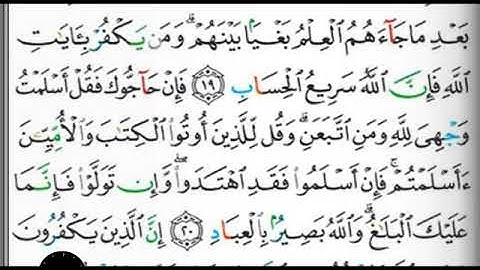 بَعْدِ مَا جَآءَهُمُ ٱلْعِلْمُ بَغْيَۢا بَيْنَهُمْ ۗ وَمَن يَكْفُرْ بِـَٔايَٰتِ
ٱللَّهِ فَإِنَّ ٱللَّهَ سَرِيعُ ٱلْحِسَابِ ١٩ فَإِنْ حَآجُّوكَ فَقُلْ أَسْلَمْتُ
وَجْهِىَ لِلَّهِ وَمَنِ ٱتَّبَعَنِ ۗ وَقُل لِّلَّذِينَ أُوتُوا۟ ٱلْكِتَٰبَ وَٱلْأُمِّيِّـۧنَ
ءَأَسْلَمْتُمْ ۚ فَإِنْ أَسْلَمُوا۟ فَقَدِ ٱهْتَدَوا۟ ۖ وَّإِن تَوَلَّوْا۟ فَإِنَّمَا
عَلَيْكَ ٱلْبَلَٰغُ ۗ وَٱللَّهُ بَصِيرٌۢ بِٱلْعِبَادِ ٢٠ إِنَّ ٱلَّذِينَ يَكْفُرُونَ